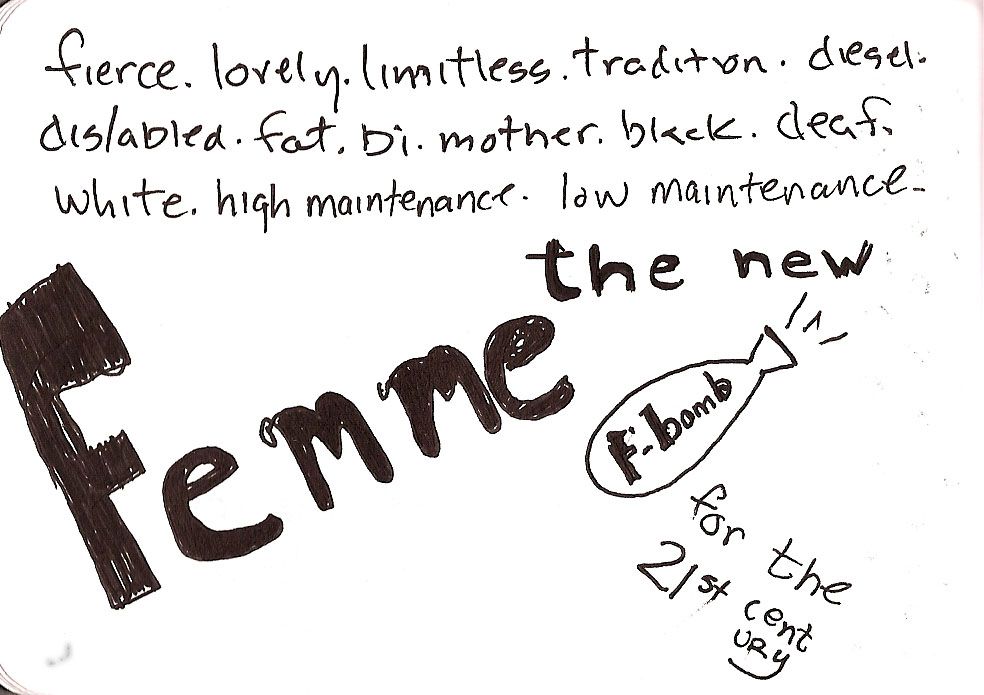 fierce. lovely. limitless. tradition. diesel.
dis/abled. fat. bi. mother. black. deaf.
white. high maintenance. low maintenance.
the new
Femme
F-bomb
for the
21st cent
URY